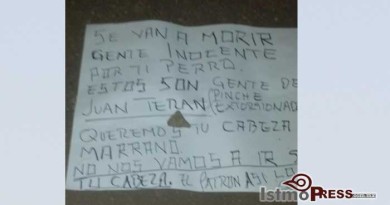 SE VAN A MORIR
GENTE INOCENTE
POR TI PERRO.
ESTOS SON GENTE DE
JUAN TERAN PINCHE
EXTORSIONADO
QUEREMOS TU CABEZA
MARRANO
NO NOS VAMOS A IR S
TU CABEZA. EL PATRON ASI LO
IstmoPRESS.com